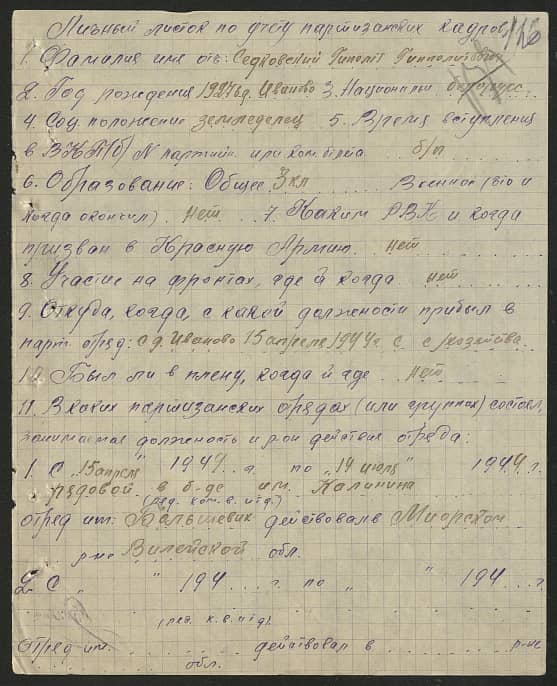 Личный листок по учету партизанских кадров
116
1. Фамилия имя отч. Седковский Гиполит Гипполитович
2. Год рождения 1927 г. д. Иваново 3. Национальн белорусс.
4. Соц положение земледелец 5. Время вступления
в ВКП(б) N партийн. или ком. билета б/п
6. Образование: Общее 3 кл Военное (что и
когда окончил) нет 7. Каким РВК и когда
призван в Красную Армию нет
8. Участие на фронтах, где и когда нет
9. Откуда, когда, с какой должности прибыл в
парт отряд: с д. Иваново 15 апреля 1944 г с с/хозяйства
10. Был ли в плену, когда и где нет
11. В каких партизанских отрядах (или группах) состоял,
занимаемая должность и рай действия отряда:
1. С "15 апреля" 1944 г. по "14 июля" 1944 г.
рядовой в б-де им. Калинина
(ряд. ком. в. и т д.)
отряд им. Большевик действовал в Миорском
р-не Вилейской обл.
2. С " " 194 г. по " " 194 г.
(ряд. к. в. и т д.)
отряд им. действовал в р-не
обл.